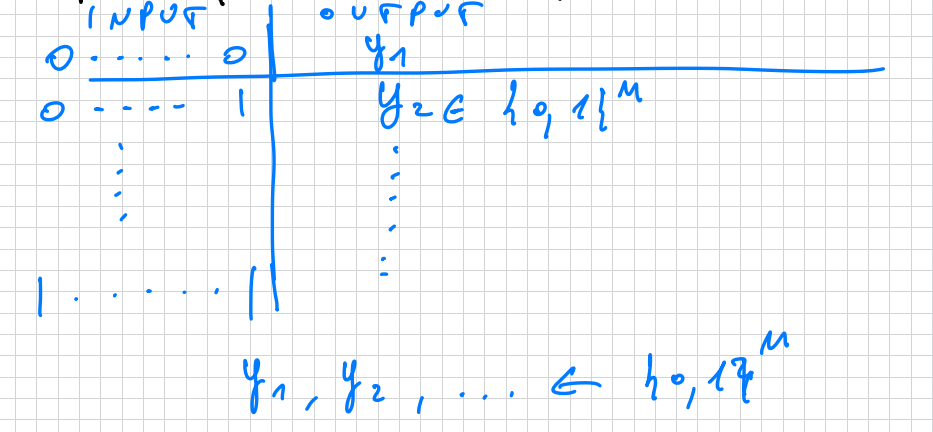 INPUT OUTPUT
0 ..... 0 y₁
0 ---- 1 y₂ ∈ {0,1}ⁿ
1 ..... 1
y₁, y₂, ... ← {0,1}ⁿ